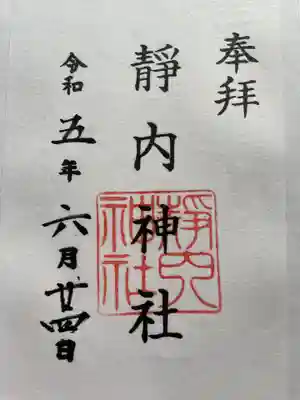 奉拝
靜内神社
令和五年六月廿四日
靜内神社